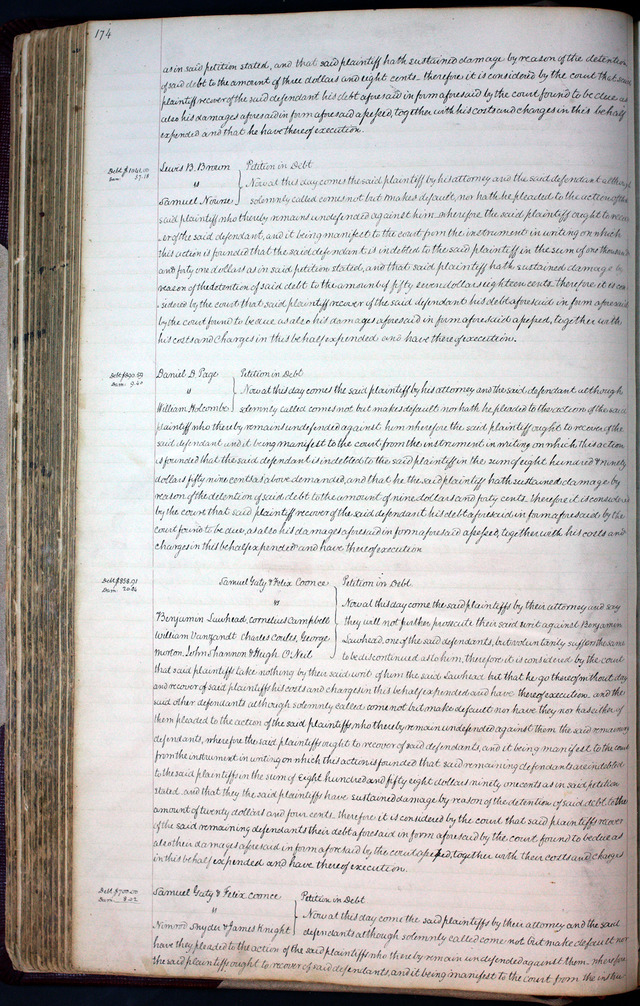 174
as in said petition stated, and that said plaintiff hath sustained damage by reason of the detention
of said debt to the amount of three dollars and eight cents. therefore it is considered by the court that said
plaintiff recover of the said defendant his debt aforesaid in form aforesaid by the court found to be due as
also his damages aforesaid in form aforesaid assessed, together with his costs and charges in this behalf
expended and that he have thereof execution.
Debt $1041.00
Dam 57.18
Lewis B. Brown Petition in Debt
vs Now at this day comes the said plaintiff by his attorney and the said defendant although
Samuel solemnly called comes not but makes default, nor hath he pleaded to the action of the
said plaintiff who thereby remains undefended against him. wherefore the said plaintiff ought to recov-
er of the said defendant, and it being manifest to the court from the instrument in writing on which
this action is founded that the said defendant is indebted to the said plaintiff in the sum of one thousand
and forty one dollars as in said petition stated, and that said plaintiff hath sustained damage by
reason of the detention of said debt to the amount of fifty seven dollars eighteen cents. therefore it is con-
sidered by the court that said plaintiff recover of the said defendant his debt aforesaid in form aforesaid
by the court found to be due as also his damages aforesaid in form aforesaid assessed, together with
his costs and charges in this behalf expended and have thereof execution.
Debt $890.59
Dam 9.40
Daniel D. Page Petition in Debt
vs Now at this day comes the said plaintiff by his attorney and the said defendant although
William Holcombe solemnly called comes not but makes default nor hath he pleaded to the action of the said
plaintiff who thereby remains undefended against him wherefore the said plaintiff ought to recover of the
said defendant and it being manifest to the court from the instrument in writing on which this action
is founded that the said defendant is indebted to the said plaintiff in the sum of eight hundred & ninety
dollars fifty nine cents as above demanded, and that he the said plaintiff hath sustained damage by
reason of the detention of said debt to the amount of nine dollars and forty cents. therefore it is considered
by the court that said plaintiff recover of the said defendant his debt aforesaid in form aforesaid by the
court found to be due, as also his damages aforesaid in form aforesaid assessed, together with his costs and
charges in this behalf expended and have thereof execution
Debt $858.91
Dam 20.04
Samuel Gaty & Felix Coonce Petition in Debt.
vs Now at this day come the said plaintiffs by their attorney and say
Benjamin Lawhead, cornelius Campbell they will not further prosecute their said writ against Benjamin
William Vanzandt charles Coules, George Lawhead, one of the said defendants, but voluntarily suffer the same
morton, John Shannon & Hugh O'Neil to be discontinued as to him, therefore it is considered by the court
that said plaintiffs take nothing by their said writ of him the said Lawhead but that he go thereof without day
and recover of said plaintiffs his costs and charges in this behalf expended and have thereof execution. and the
said other defendants although solemnly called come not but make default nor have they nor has either of
them pleaded to the action of the said plaintiffs who thereby remain undefended against them the said remaining
defendants, wherefore the said plaintiffs ought to recover of said defendants, and it being manifest to the court
from the instrument in writing on which this action is founded that said remaining defendants are indebted
to the said plaintiffs in the sum of Eight hundred and fifty eight dollars ninety one cents as in said petition
stated, and that they the said plaintiffs have sustained damage by reason of the detention of said debt to the
amount of twenty dollars and four cents. therefore it is considered by the court that said plaintiffs recover
of the said remaining defendants their debt aforesaid in form aforesaid by the court found to be due as
also their damages aforesaid in form aforesaid by the court assessed, together with their costs and charges
in this behalf expended and have thereof execution.
Debt $700.00
Dam 8.02
Samuel Gaty & Felix coonce Petition in Debt
vs Now at this day come the said plaintiffs by their attorney and the said
Nimrod Snyder & James Knight defendants although solemnly called come not but make default nor
have they pleaded to the action of the said plaintiffs who thereby remain undefended against them. wherefore
the said plaintiffs ought to recover of said defendants, and it being manifest to the court from the instru-